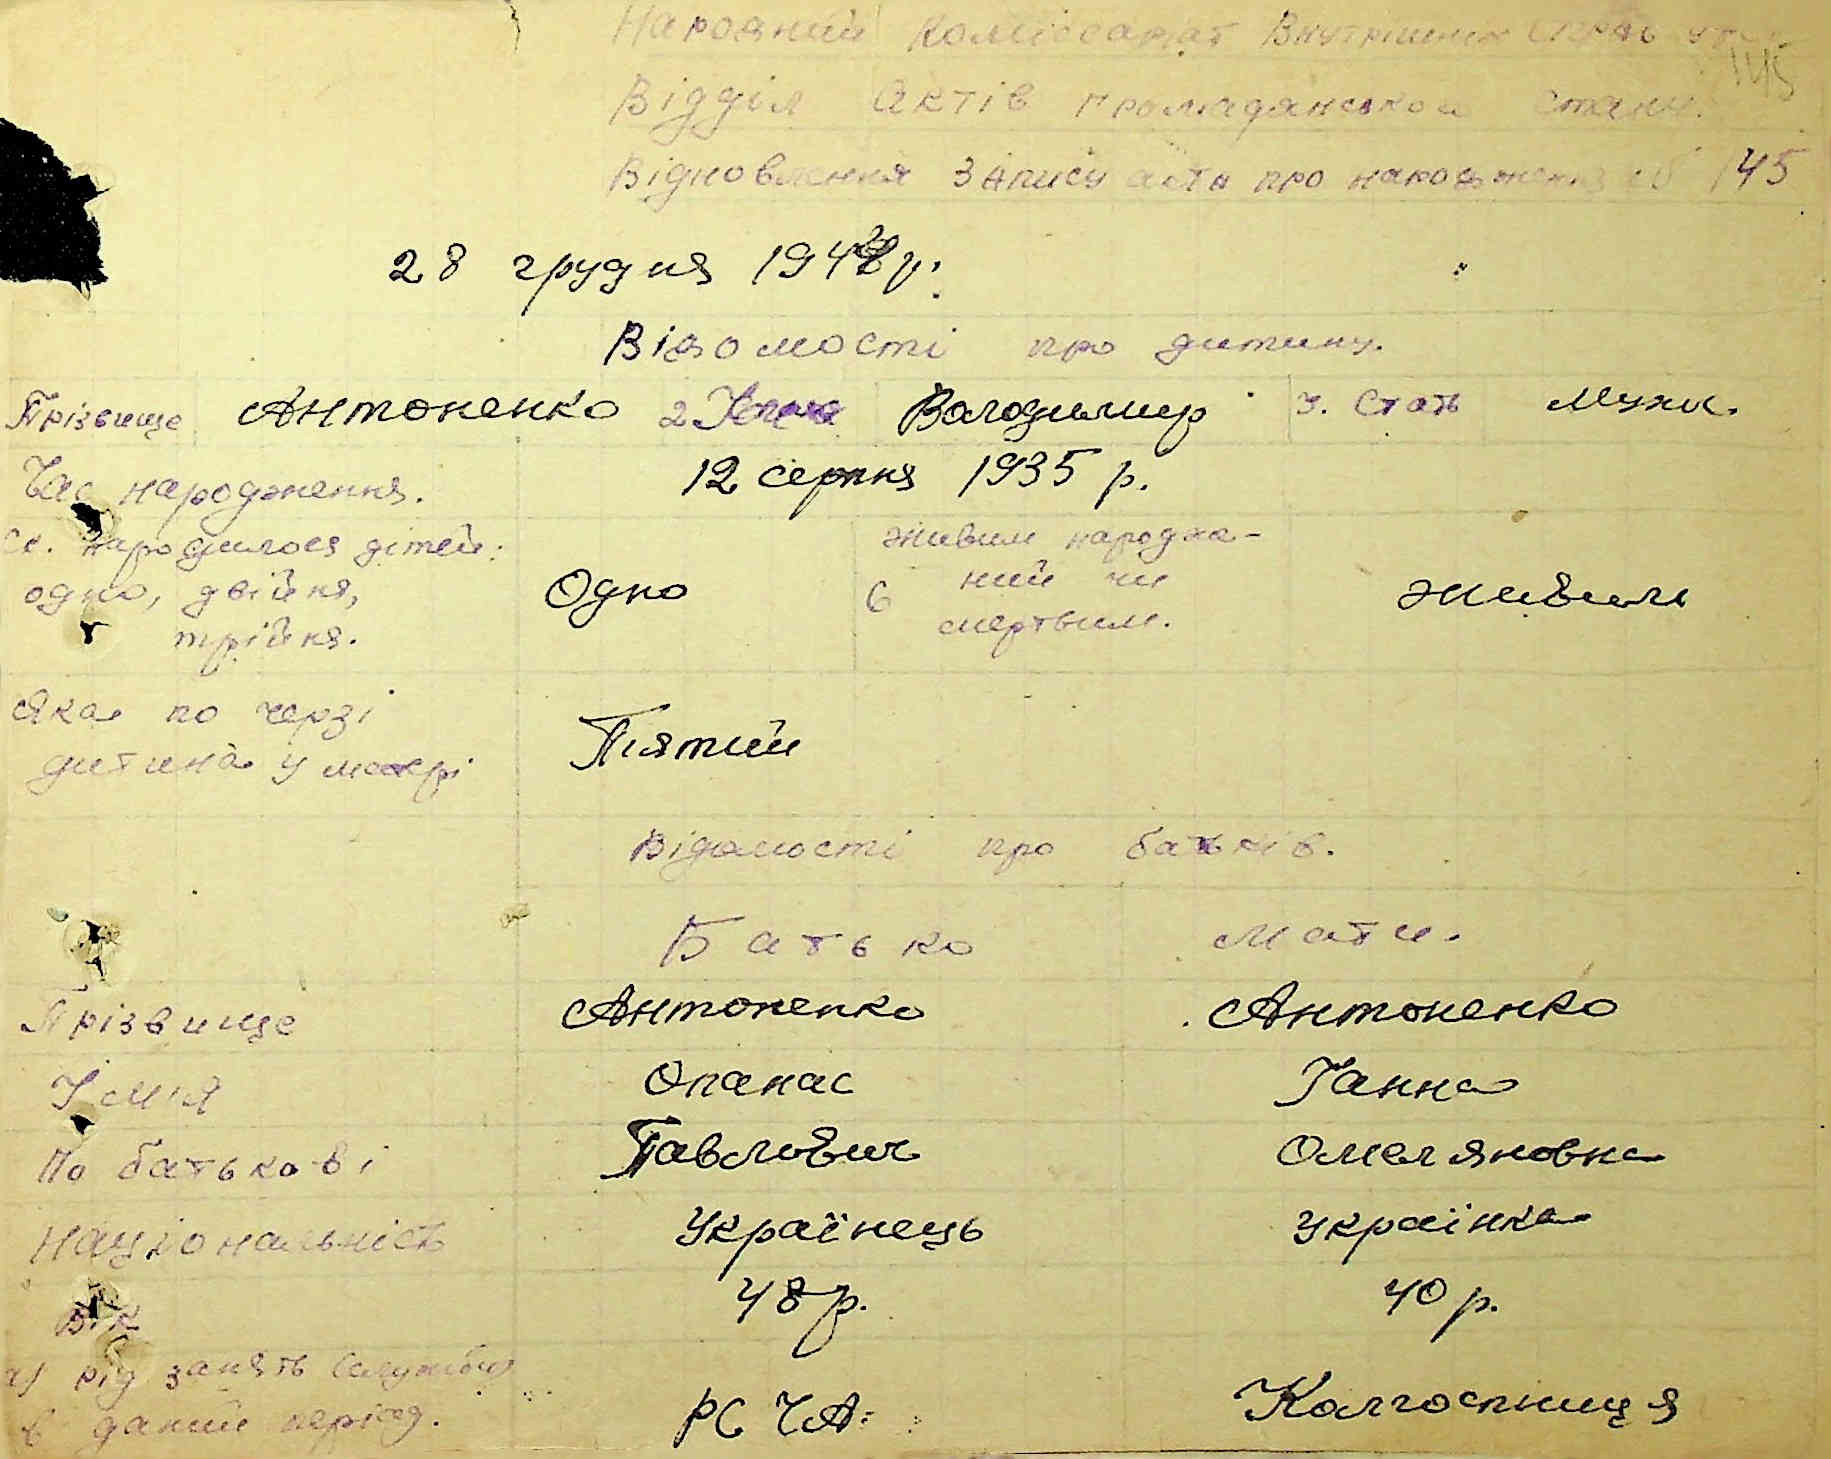 Народний Коміссаріат Внутрішніх Справ
145
Відділ Актів громадянського стану.
Відновлення запису акта про народження № 145
28 грудня 194 р.
Відомості про дитину.
Прізвище Антоненко 2 Володимир 3. Стать Мужс.
Час народження. 12 серпня 1935 р.
Ск. народилося дітей: одно, двійня, трійня. Одно 6 живим народже-
ний чи
мертвим. живим
Яка по черзі
дитина у матері Пятий
Відомості про батьків.
Батько Мати.
Прізвище Антоненко Антоненко
Імія Опанас Ганна
По батькові Павлович Омеляновна
Національність Українець Українка
Вік 48 р. 40 р.
а) рід занять (служби)
в даний період. РСЧА Колгоспниця